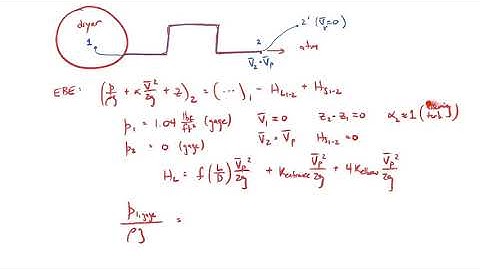 dryer
1
2' (V̄₂=0)
2
V̄₂=V̄p
atm
EBE: (p/ρg + α V̄²/2g + z)₂ = (···)₁ - H_L1-2 + H_S1-2
p₁ = 1.04 lbf/ft² (gage) V̄₁ = 0 z₂-z₁=0 α₂≈1 (turb.)
p₂ = 0 (gage) V̄₂ = V̄p H_S1-2=0
H_L = f(L/D) V̄p²/2g + K_entrance V̄p²/2g + 4K_elbow V̄p²/2g
p₁,gage/ρg =